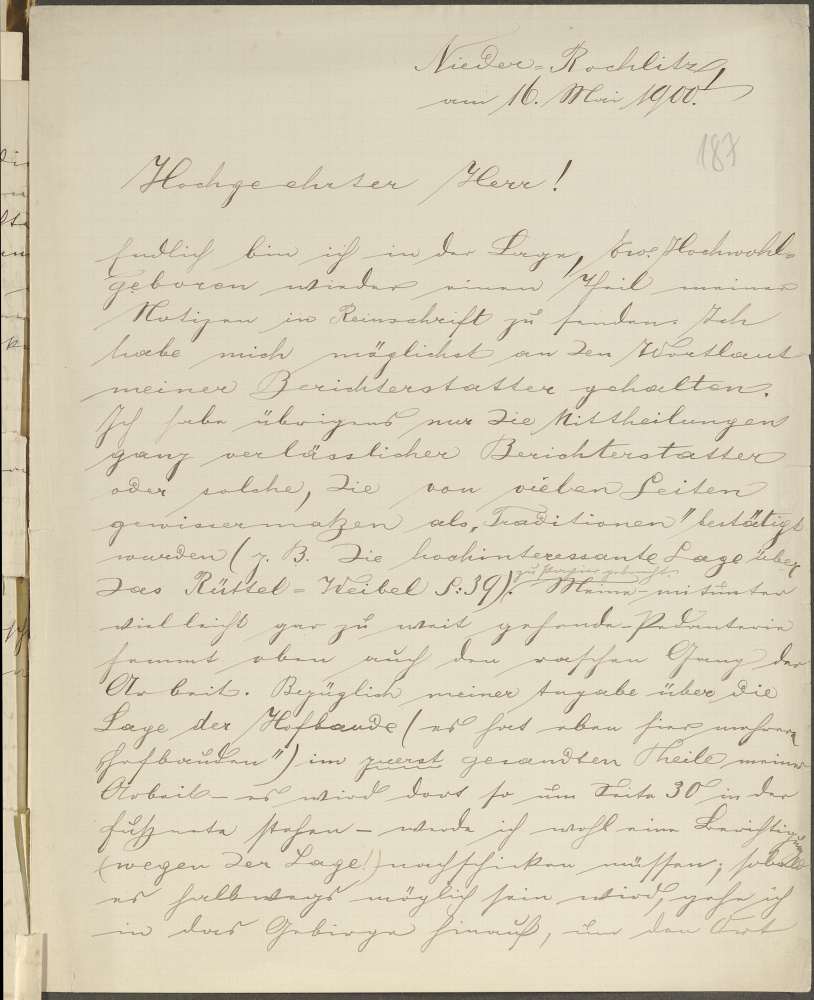 Nieder-Rochlitz,
am 16. Mai 1900.
187
Hochgeehrter Herr!
Endlich bin ich in der Lage, Ew. Hochwohl-
geboren wieder einen Theil meiner
Notizen in Reinschrift zu senden. Ich
habe mich möglichst an den Wortlaut
meiner Berichterstatter gehalten.
Ich habe übrigens nur die Mittheilungen
ganz verlässlicher Berichterstatter
oder solche, die von vielen Seiten
gewissermaßen als „Traditionen" bestätigt
wurden (z. B. die hochinteressante Sage über
das Rüttel-Weibel S: 39), zu Papier gebracht.
Meine - mitunter
vielleicht gar zu weit gehende - Pedanterie
hemmt eben auch den raschen Gang der
Arbeit. Bezüglich meiner Angabe über die
Lage der Hofbaude (es hat eben hier mehrere
„Hofbauden") im zuerst gesandten Theile meiner
Arbeit - es wird dort so um Seite 30 in der
Fußnote stehen - werde ich wohl eine Berichtigung
(wegen der Lage!) nachschicken müssen; sobald
es halbwegs möglich sein wird, gehe ich
in das Gebirge hinauf, um den Ort